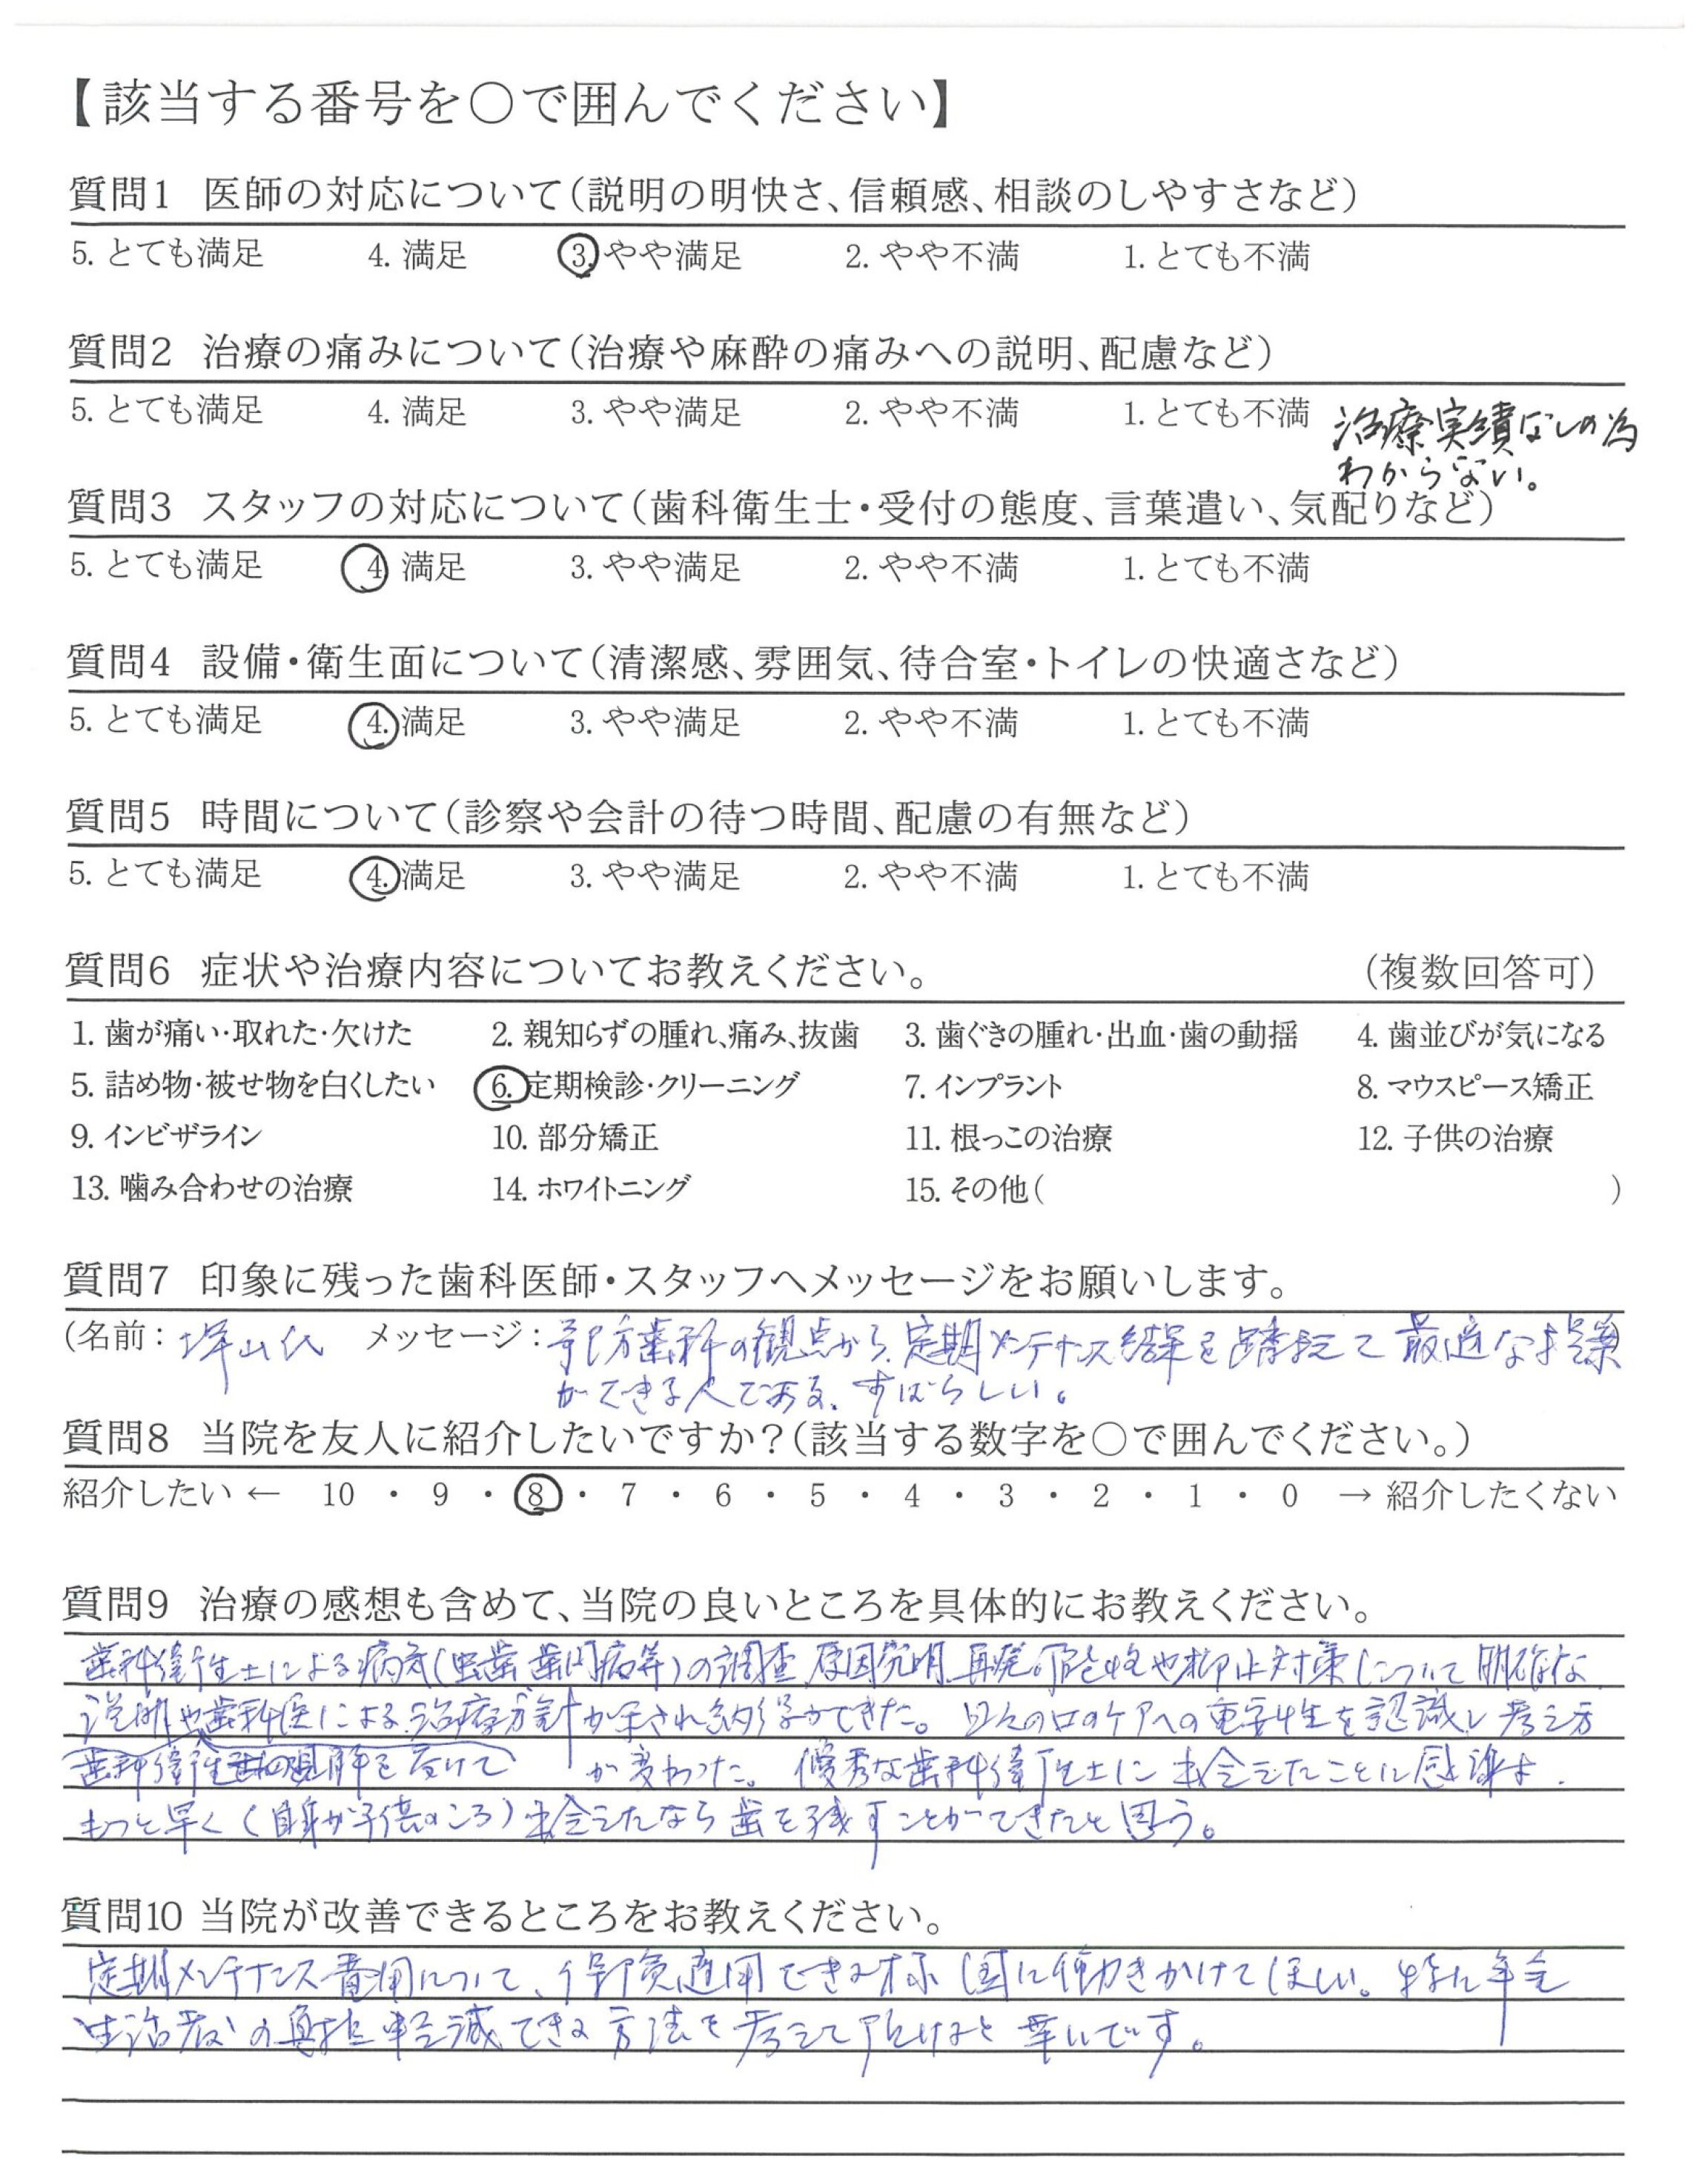 【該当する番号を○で囲んでください】
質問1 医師の対応について(説明の明快さ、信頼感、相談のしやすさなど)
5. とても満足 4. 満足 3. やや満足 2. やや不満 1. とても不満
質問2 治療の痛みについて(治療や麻酔の痛みへの説明、配慮など)
5. とても満足 4. 満足 3. やや満足 2. やや不満 1. とても不満 治療実績なしの為
わからない。
質問3 スタッフの対応について(歯科衛生士・受付の態度、言葉遣い、気配りなど)
5. とても満足 4 満足 3. やや満足 2. やや不満 1. とても不満
質問4 設備・衛生面について(清潔感、雰囲気、待合室・トイレの快適さなど)
5. とても満足 4. 満足 3. やや満足 2. やや不満 1. とても不満
質問5 時間について(診察や会計の待つ時間、配慮の有無など)
5. とても満足 4. 満足 3. やや満足 2. やや不満 1. とても不満
質問6 症状や治療内容についてお教えください。 (複数回答可)
1. 歯が痛い・取れた・欠けた 2. 親知らずの腫れ、痛み、抜歯 3. 歯ぐきの腫れ・出血・歯の動揺 4. 歯並びが気になる
5. 詰め物・被せ物を白くしたい 6. 定期検診・クリーニング 7. インプラント 8. マウスピース矯正
9. インビザライン 10. 部分矯正 11. 根っこの治療 12. 子供の治療
13. 噛み合わせの治療 14. ホワイトニング 15. その他( )
質問7 印象に残った歯科医師・スタッフへメッセージをお願いします。
(名前: 山氏 メッセージ: 予防歯科の観点から、定期メンテナンス結果を踏まえて最適な提案
ができる人である。すばらしい。
質問8 当院を友人に紹介したいですか?(該当する数字を○で囲んでください。)
紹介したい ← 10 ・ 9 ・ 8 ・ 7 ・ 6 ・ 5 ・ 4 ・ 3 ・ 2 ・ 1 ・ 0 → 紹介したくない
質問9 治療の感想も含めて、当院の良いところを具体的にお教えください。
歯科衛生士による病気(虫歯 歯周病等)の調査 原因究明 再発可能性や抑止対策について明確な
説明や歯科医による治療方針が示され納得ができた。日々の口のケアへの重要性を認識し考え方
歯科衛生士の見解を受けて が変わった。優秀な歯科衛生士に出会えたことに感謝。
もっと早く(自身が子供のころ)出会えたなら歯を残すことができたと思う。
質問10 当院が改善できるところをお教えください。
定期メンテナンス費用について、保険適用できる様 国に働きかけてほしい。特に年金
生活者の負担軽減できる方法を考えて頂けると幸いです。